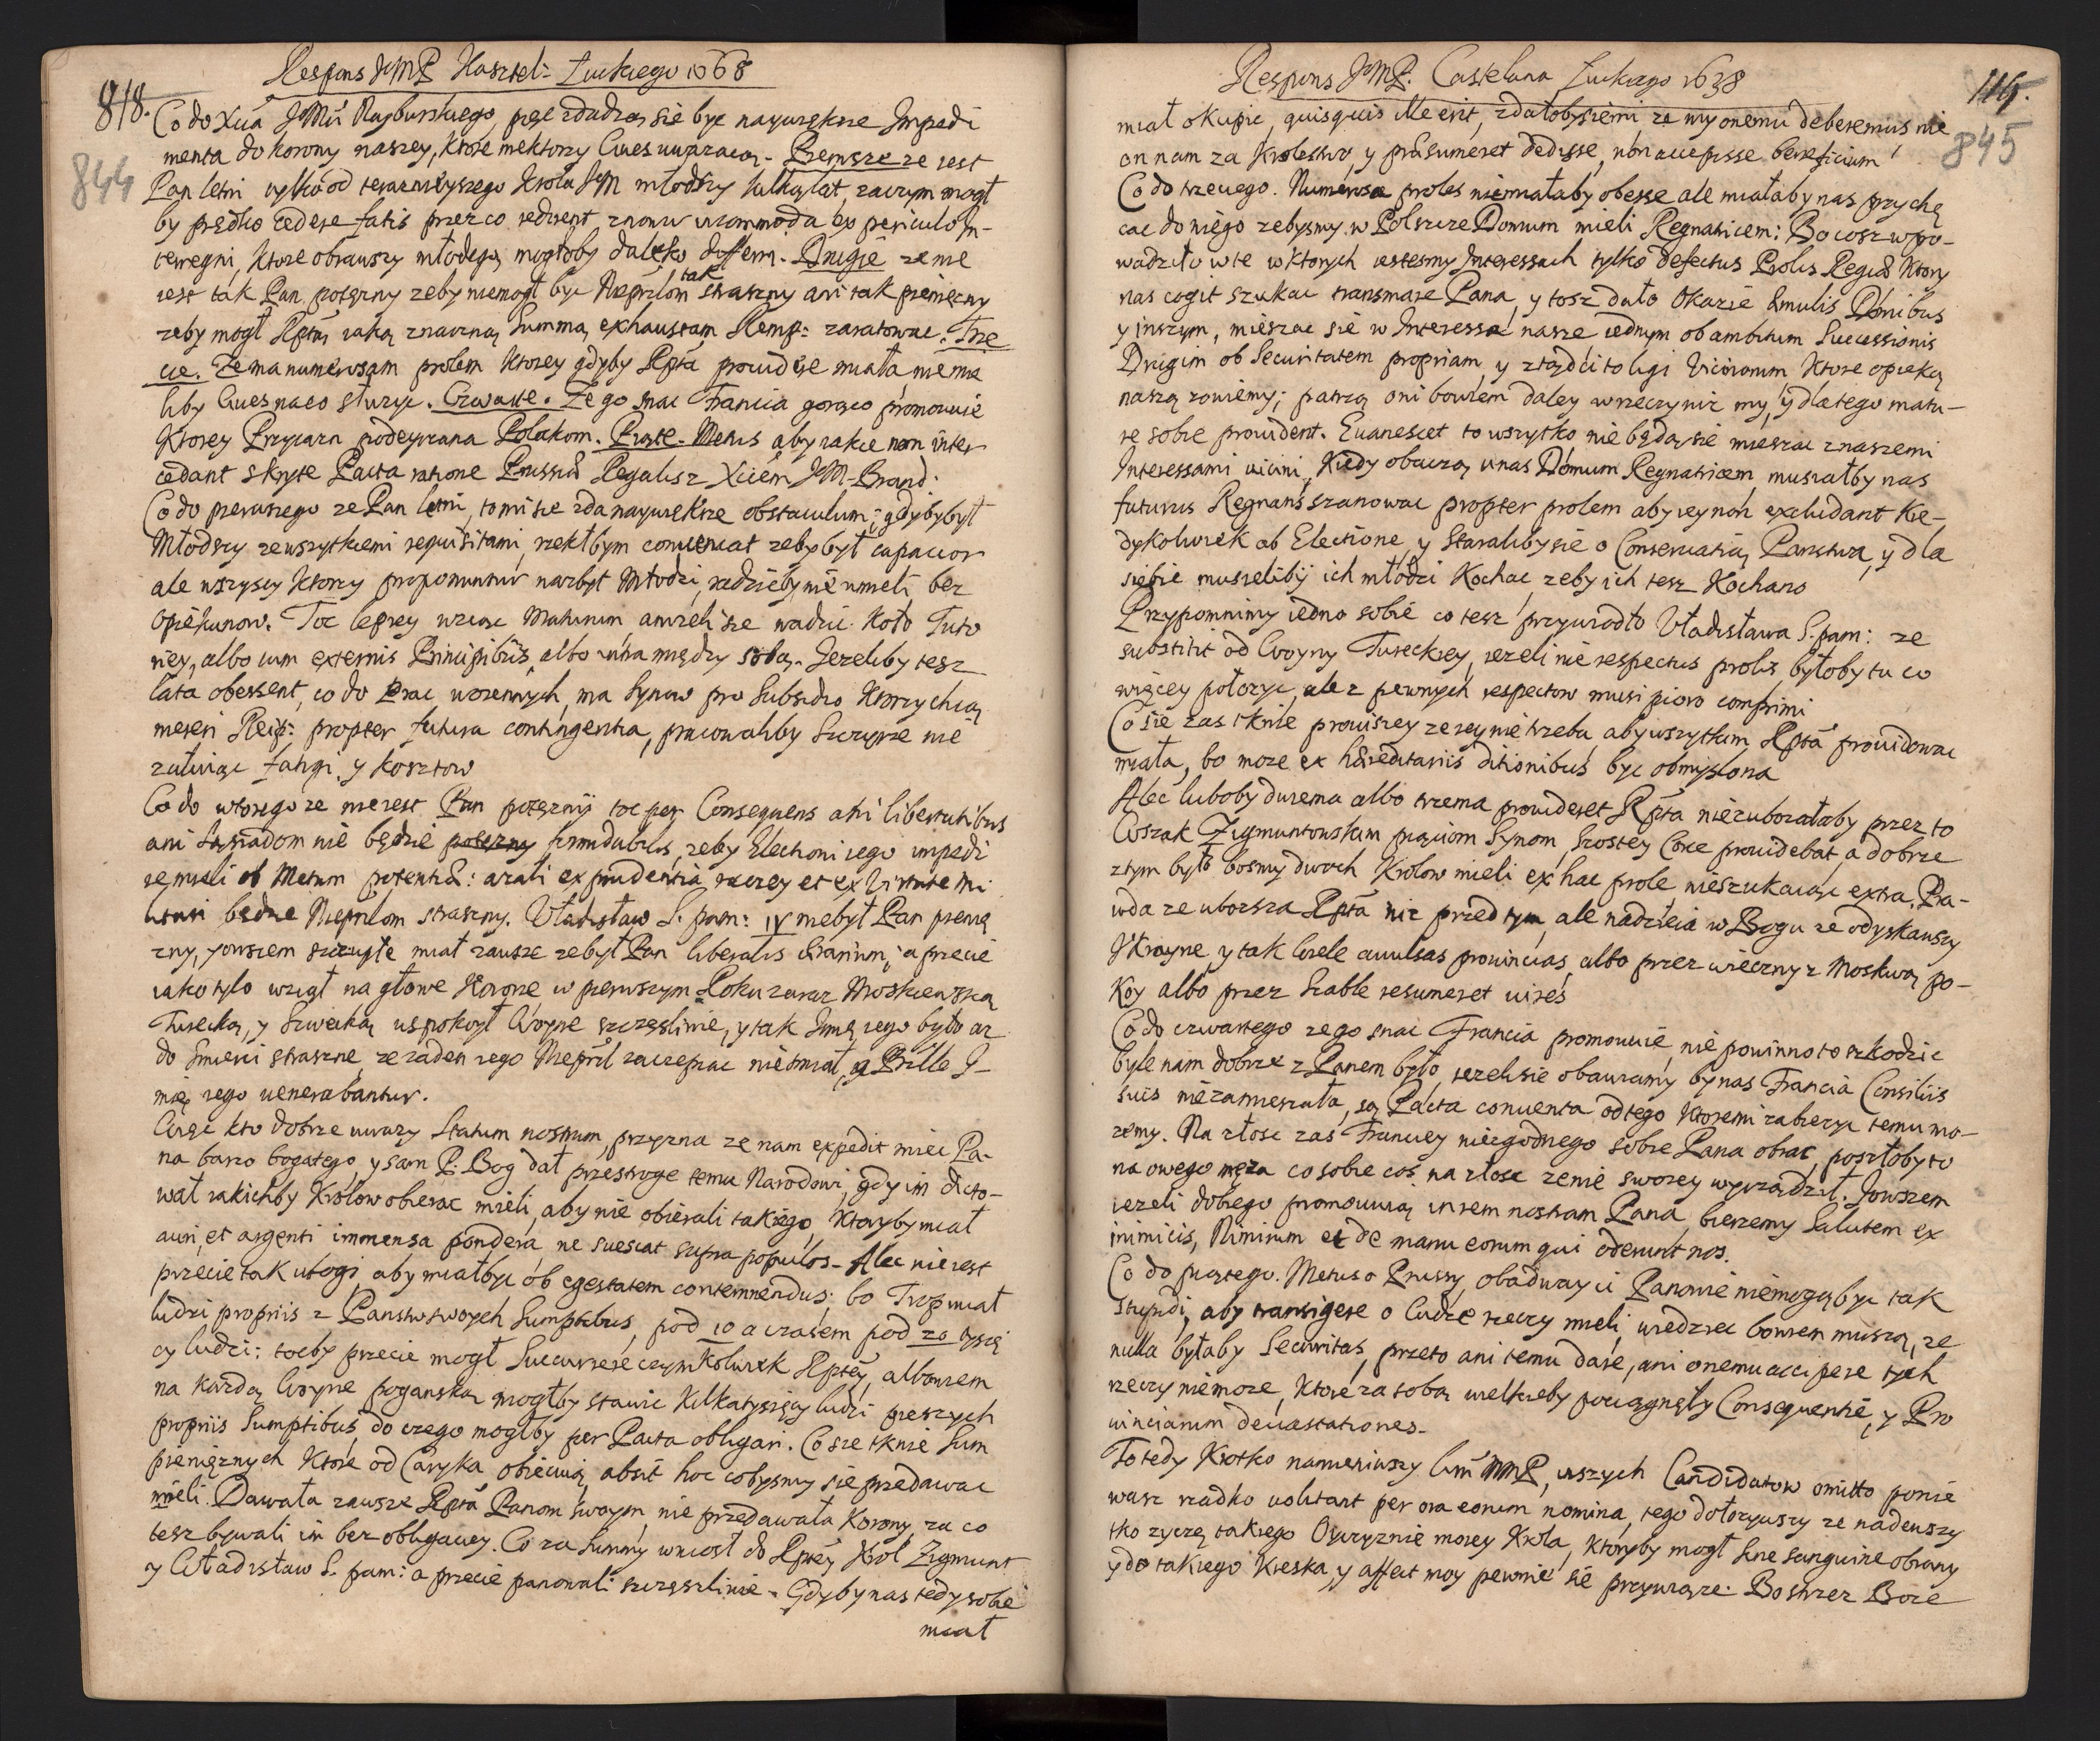 Respons JeMP Kasztel: Łuckiego 1668
818.
844
Co do Xcia JeMci Nayburskiego, pięc zdadzą się byc naywiększe Impedi
menta do korony naszey, ktore niektorzy Cives uwazaią. Pierwsze ze iest
Pan letni tylko od terazniyszego Krola JeM młodszy kilką lat, zaczym mogł
by prędko cedere fatis przez co redirent znowu incommoda ex periculo In-
terregni, ktore obrawszy młodego, mogłoby daleko differri. Drugie ze nie
iest tak Pan potęzny zeby niemogł byc Nieprlom tak straszny ani tak pienięzny
zeby mogł Rptą iaką znaczną Summą exhaustam Remp: zaratowac. Trze
cie. Ze ma numerosam prolem ktorey gdyby Rpta providere miała, nie mie
liby Cives na co słuzyc. Czwarte. Ze go snac Francia gorąco promowuie
Ktorey Przyiazn podeyrzana Polakom. Piąte. Metus aby iakie non inter
cedant skryte Pacta ratione Prussiæ Regalis z Xciem JeM. Brand:
Co do pierwszego ze Pan letni, to mi sie zda naywiększe obstaculum; gdyby był
Młodszy ze wszytkiemi requisitami, rzekłbym conveniat zeby był capacior
ale wszyscy ktorzy proponuntur nazbyt Młodzi, rządzieby nie umieli bez
Opiekunow. Toc lepiey wziąc Maturum anizeli sie wadzic koło Tuto
riey, albo cum externis Principibus, albo intra między sobą. Jezeliby tesz
lata obessent, co do Prac woiennych, ma Synow pro Subsidio ktorzy chcąc
mereri Reip: propter futura contingentia, pracowaliby Szczyrze nie
załuiąc fatigi y kosztow
Co do wtorego ze nie iest Pan potęzny toc per Consequens ani libertatibus
ani Sąsiadom nie będzie potęzny formidabilis, zeby Electioni iego impedi
re mieli ob Metum potentiæ: a zali ex prudentia raczey et ex Virtute mi
litari będzie Nieprlom straszny. Vładysław S. pam: IV nie był Pan pienię
zny, y owszem szczupłe miał zawsze ze był Pan liberalis ærarium, a przecie
iako tylo wziął na głowe Korone, w pierwszym Roku zaraz Moskiewską
Turecką, y Szwecką uspokoył Woyne szczęsliwie, y tak Imię iego było az
do Smierci straszne, ze zaden iego Nieprl zaczepiac nie smiał, y Ville I-
mię iego venerabantur.
Więc kto dobrze uwazy Statum nostrum, przyzna ze nam expedit miec Pa-
na barzo bogatego, y sam P. Bog dał przestroge temu Narodowi, gdy im dicto-
wał iakichby Krolow obierac mieli, aby nie obierali takiego, ktoryby miał
auri, et argenti immensa pondera, ne suescat supra populos. Alec nie iest
przecie tak ubogi, aby miał byc ob egestatem contemnendus; bo Trop miał
ludzi propriis z Panstw swoych Sumptibus, pod 10 a czasem pod 20 tysię
cy ludzi: tocby przecie mogł Succurrere czymkolwiek Rptey, albowiem
na kazdą Woyne poganską mogłby stawic kilkatysięcy ludzi pieszych
propriis Sumptibus, do czego mogłby per Pacta obligari. Co sie tknie Sum
pieniężnych ktore od Caryka obiecuią, absit hoc cobysmy sie przedawac
mieli. Dawała zawsze Rpta Panom swoym, nie przedawała Korony, za co
tesz bywali im bez obligacyey. Co za Summy wniosł do Rptey Krol Zigmunt
y Władisław S. pam: a przecie panowali szczesliwie. Gdyby nas tedy sobie
miał
Respons JeMP. Castelana Łuckiego 1638
115.
845
miał okupic, quisquis ille erit, zdałobysiemi, ze my onemu deberemus nie
on nam za Krolestwo, y præsumeret dedisse, non accepisse beneficium
Co do trzeciego. Numerosa proles niemiałaby obesse ale miałaby nas przychę
cac do niego zebysmy w Polszcze Domum mieli Regnatricem: Bo cosz wpo-
wadziło w te w ktorych iestesmy Interessach tylko defectus Prolis Regiæ ktory
nas cogit szukac transmare Pana, y tosz dało okazie æmulis Domibus
y inszym, mieszac sie w Interesse nasze iednym ob ambitum Successionis
Drugim ob Securitatem propriam y ztąd ci to ligi Vicinorum ktore opieką
naszą zowiemy; patrzą oni bowiem daley w rzeczy niz my, y dlatego matu-
re sobie provident. Evanescet to wszytko nie będą sie mieszac z naszemi
Interessami vicini, Kiedy obaczą u nas Domum Regnatricem, musiałby nas
futurus Regnans szanowac propter prolem aby iey non excludant kie-
dykolwiek ab Electione, y Staraliby sie o Conservatią Panstwa, y dla
siebie musieliby ich młodzi kochac, zeby ich tesz kochano
Przypomnimy iedno sobie co tesz przywiodło Vładisława S. pam: ze
substitit od Woyny Tureckiey, iezeli nie respectus prolis, byłoby tu co
więcey połozyc, ale z pewnych respectow musi pioro comprimi
Co sie zas tknie prowisiey ze iey nie trzeba, aby wszytkim Rpta providowac
miała, bo moze ex hæreditariis ditionibus byc obmyslona
Alec luboby dwiema albo trzema provideret Rpta niezubozałaby przez to
Wszak Zigmuntowskim pięciom Synom, Szostey Corce providebat, a dobrze
z tym było bosmy dwoch Krolow mieli ex hac prole nieszukaiąc extra. Pra-
wda ze ubozsza Rpta niz przed tym, ale nadzieia w Bogu ze odyskawszy
Ukrayne, y tak wiele avulsas provincias, albo przez wieczny z Moskwą po-
koy albo przez Szable resumeret vires
Co do czwartego ze go snac Francia promowuie, nie powinno to szkodzic
byle nam dobrze z Panem było, iezeli sie obawiamy by nas Francia Consiliis
suis niezamieszała, są Pacta conventa od tego ktoremi zabiezyc temu mo-
zemy. Na złosc zas Francyey niezgodnego sobie Pana obrac, poszłoby to
na owego męza co sobie cos na złosc zenie swoiey wyrządził. Jowszem
iezeli dobrego promowuią in rem nostram Pana, bierzemy Salutem ex
inimicis, Nimirum et de manu eorum qui oderunt nos.
Co do piątego. Metus o Prussy, obadway ci Panowie niemogą byc tak
stupidi, aby transigere o cudze rzeczy mieli, wiedziec bowiem muszą, ze
nulla byłaby Securitas, przeto ani temu dare, ani onemu accipere tych
rzeczy niemoze, ktore za sobą wielkieby pociągnęły Consequentie, y Pro
vinciarum devastationes.
To tedy krotko namieniwszy Wm MMP, inszych Candidatow omitto ponie
wasz rzadko volitant per ora eorum nomina, tego dołozywszy ze nadewszy
tko zyczę takiego Oyczyznie moiey Krola, ktoryby mogł sine sanguine obrany
y do takiego kreska, y affect moy pewnie sie przywiąze. Bo strzez Boze